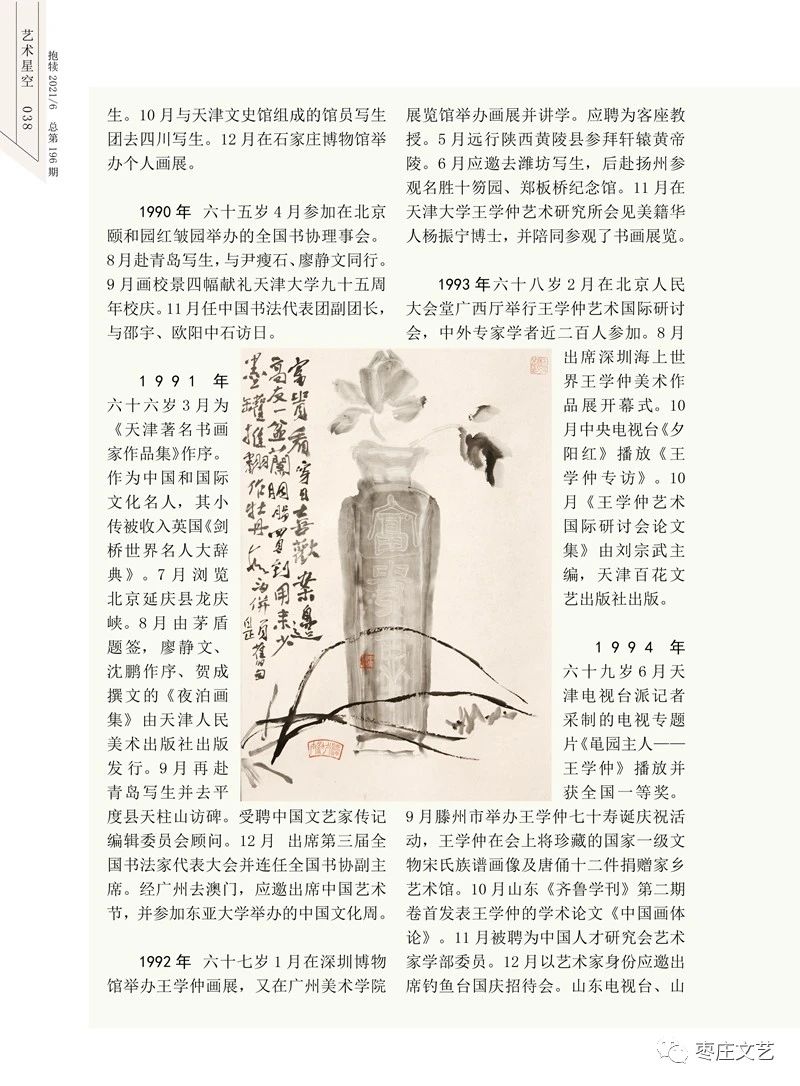 艺术星空 038
抱犊 2021/6 总第 196 期
生。10 月与天津文史馆组成的馆员写生
团去四川写生。12 月在石家庄博物馆举
办个人画展。
1990 年 六十五岁 4 月参加在北京
颐和园红皱园举办的全国书协理事会。
8 月赴青岛写生，与尹瘦石、廖静文同行。
9 月画校景四幅献礼天津大学九十五周
年校庆。11 月任中国书法代表团副团长，
与邵宇、欧阳中石访日。
1991 年
六十六岁 3 月为
《天津著名书画
家作品集》作序。
作为中国和国际
文化名人，其小
传被收入英国《剑
桥世界名人大辞
典》。7 月 浏 览
北京延庆县龙庆
峡。8 月由茅盾
题签，廖静文、
沈鹏作序、贺成
撰文的《夜泊画
集》由天津人民
美术出版社出版
发行。9 月再赴
青岛写生并去平
度县天柱山访碑。受聘中国文艺家传记
编辑委员会顾问。12 月 出席第三届全
国书法家代表大会并连任全国书协副主
席。经广州去澳门，应邀出席中国艺术
节，并参加东亚大学举办的中国文化周。
1992 年 六十七岁 1 月在深圳博物
馆举办王学仲画展，又在广州美术学院
展览馆举办画展并讲学。应聘为客座教
授。5 月远行陕西黄陵县参拜轩辕黄帝
陵。6 月应邀去潍坊写生，后赴扬州参
观名胜十笏园、郑板桥纪念馆。11 月在
天津大学王学仲艺术研究所会见美籍华
人杨振宁博士，并陪同参观了书画展览。
1993 年六十八岁 2 月在北京人民
大会堂广西厅举行王学仲艺术国际研讨
会，中外专家学者近二百人参加。8 月
出席深圳海上世
界王学仲美术作
品展开幕式。10
月中央电视台《夕
阳红》播放《王
学仲专访》。10
月《王学仲艺术
国际研讨会论文
集》由刘宗武主
编，天津百花文
艺出版社出版。
1994 年
六十九岁 6 月天
津电视台派记者
采制的电视专题
片《黾园主人——
王学仲》播放并
获全国一等奖。
9 月滕州市举办王学仲七十寿诞庆祝活
动，王学仲在会上将珍藏的国家一级文
物宋氏族谱画像及唐俑十二件捐赠家乡
艺术馆。10 月山东《齐鲁学刊》第二期
卷首发表王学仲的学术论文《中国画体
论》。11 月被聘为中国人才研究会艺术
家学部委员。12 月以艺术家身份应邀出
席钓鱼台国庆招待会。山东电视台、山
富贵看穿日喜欢案边
高友一盆兰胭脂四月到用来少
墨罐推翻作牡丹
富贵
枣庄文艺